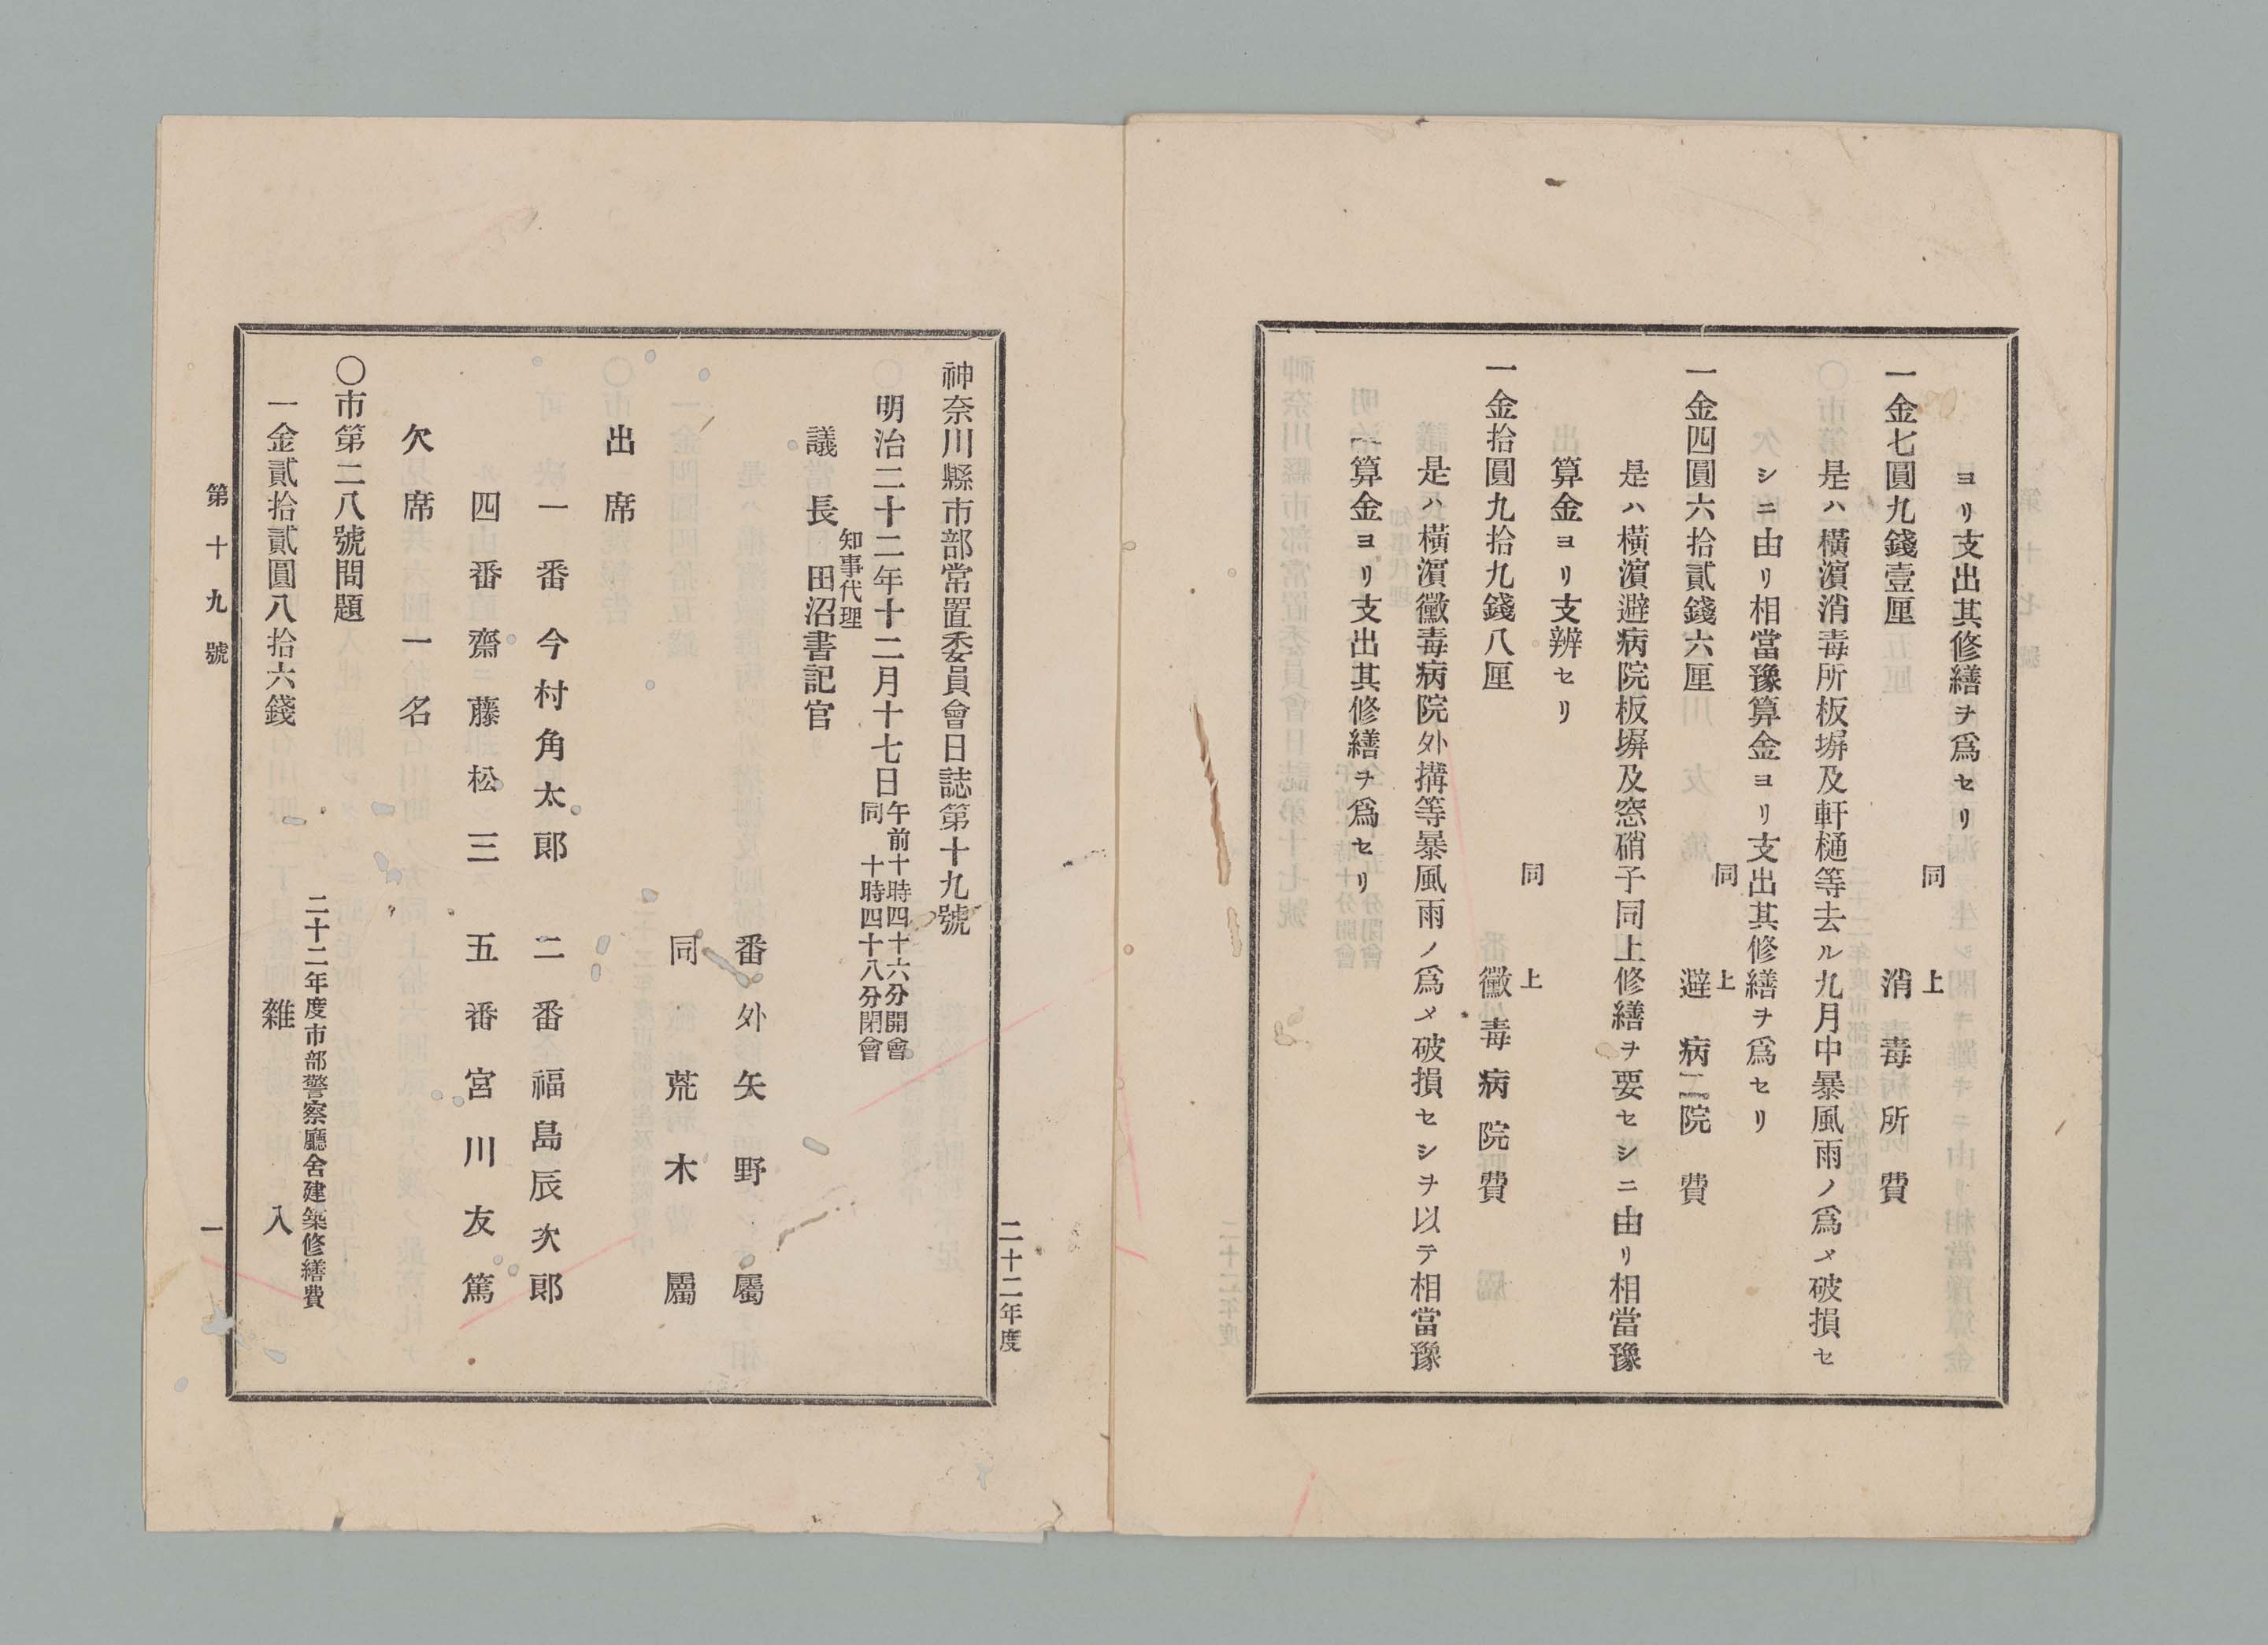 ヨリ支出其修繕ヲ爲セリ
同上
一金七圓九錢壹厘 消毒所費
是ハ橫濱消毒所板塀及軒樋等去ル九月中暴風雨ノ爲メ破損セ
シニ由リ相當豫算金ヨリ支出其修繕ヲ爲セリ
同上
一金四圓六拾貳錢六厘 避病院費
是ハ橫濱避病院板塀及窓硝子同上修繕ヲ要セシニ由リ相當豫
算金ヨリ支辨セリ
同上
一金拾圓九拾九錢八厘 黴毒病院費
是ハ橫濱黴毒病院外搆等暴風雨ノ爲メ破損セシヲ以テ相當豫
算金ヨリ支出其修繕ヲ爲セリ
二十二年度
神奈川縣市部常置委員會日誌第十九號
明治二十二年十二月十七日 午前十時四十六分開會
同 十時四十八分閉會
知事代理
議長 田沼書記官
番外 矢野屬
同 荒木屬
出席
一番 今村角太郎 二番 福島辰次郎
四番 齋藤松三 五番 宮川友篤
欠席 一名
〇市第二八號問題
二十二年度市部警察廳舍建築修繕費
一金貳拾貳圓八拾六錢 雜入
第十九號 一